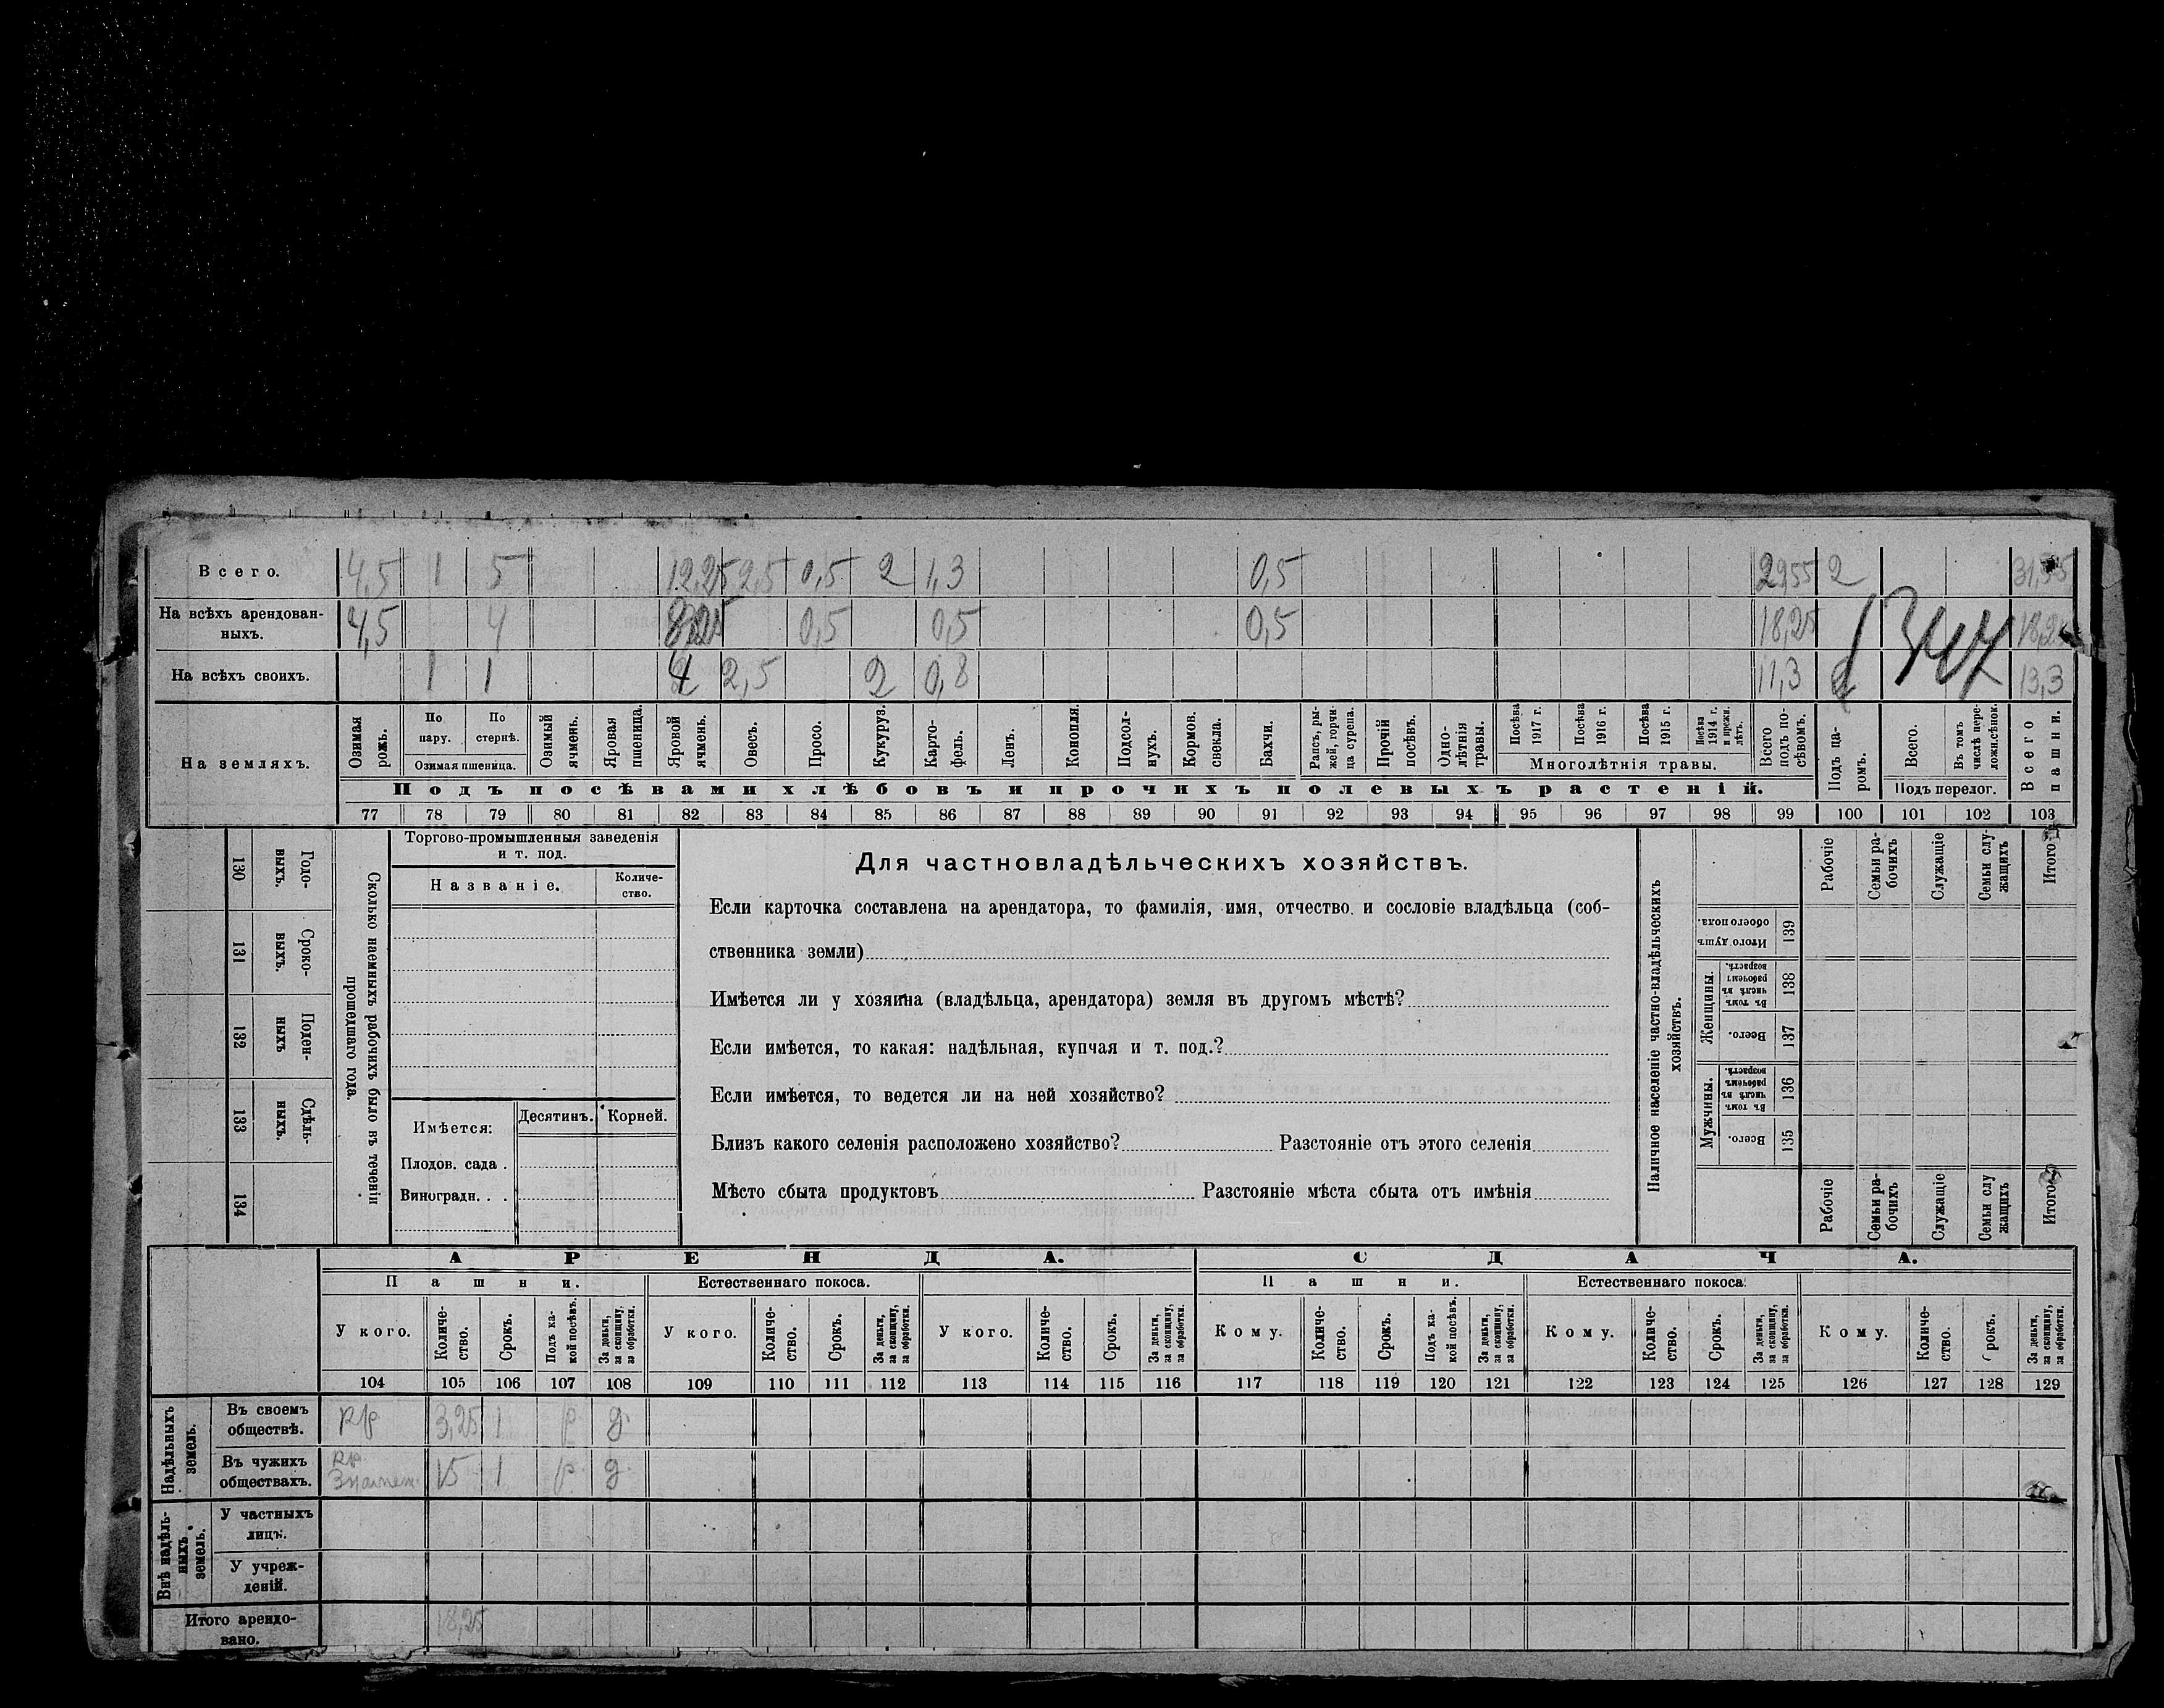 Всего. 4,5 1 5 12,25 2,5 0,5 2 1,3 0,5 29,55 2 31,55
На всѣхъ арендован-
ныхъ. 4,5 4 8,25 0,5 0,5 0,5 18,25 18,25
1347
На всѣхъ своихъ. 1 1 4 2,5 2 0,8 11,3 2 13,3
На земляхъ.
Озимая рожь.
По пару.
По стернѣ.
Озимая пшеница.
Озимый ячмень.
Яровая пшеница.
Яровой ячмень.
Овесъ.
Просо.
Кукуруз.
Карто-
фель.
Ленъ.
Конопля.
Подсол-
нухъ.
Кормов. свекла.
Бахчи.
Рапсъ, ры-
жей, горчи
ца сурепа.
Прочій посѣвъ.
Одно-
лѣтнія травы.
Посѣва 1917 г.
Посѣва 1916 г.
Посѣва 1915 г.
Посѣва 1914 г. и прежн. лѣтъ.
Многолѣтнія травы.
Всего подъ по-
сѣвомъ.
Подъ па-
ромъ.
Всего.
Въ томъ числѣ пере-
ложн. сѣнок.
Подъ перелог.
Всего пашни.
Подъ посѣвами хлѣбовъ и прочихъ полевыхъ растеній.
77 78 79 80 81 82 83 84 85 86 87 88 89 90 91 92 93 94 95 96 97 98 99 100 101 102 103
130 Годо-
выхъ.
131 Сроко-
выхъ.
132 Поден-
ныхъ
133 Сдѣль-
ныхъ.
134
Сколько наемныхъ рабочихъ было въ теченіи
прошедшаго года.
Торгово-промышленныя заведенія
и т. под.
Названіе.
Количе-
ство.
Имѣется:
Десятинъ. Корней.
Плодов. сада .
Виноградн. . .
Для частновладѣльческихъ хозяйствъ.
Если карточка составлена на арендатора, то фамилія, имя, отчество и сословіе владѣльца (соб-
ственника земли)
Имѣется ли у хозяина (владѣльца, арендатора) земля въ другомъ мѣстѣ?
Если имѣется, то какая: надѣльная, купчая и т. под.?
Если имѣется, то ведется ли на ней хозяйство?
Близъ какого селенія расположено хозяйство? Разстояніе отъ этого селенія
Мѣсто сбыта продуктовъ Разстояніе мѣста сбыта отъ имѣнія
Наличное населеніе частно-владѣльческихъ
хозяйствъ.
Рабочіе
Семьи ра-
бочихъ
Служащіе
Семьи слу-
жащихъ
Итого
Итого душъ обоего пола. 139
Женщины.
Въ томъ числѣ въ рабочемъ возрастѣ. 138
Всего. 137
Мужчины.
Въ томъ числѣ въ рабочемъ возрастѣ. 136
Всего. 135
Рабочіе
Семьи ра-
бочихъ
Служащіе
Семьи слу
жащихъ
Итого
АРЕНДА. СДАЧА.
Пашни. Естественнаго покоса. Пашни. Естественнаго покоса.
У кого.
Количе-
ство.
Срокъ.
Подъ ка-
кой посѣвъ.
За деньги, за скопщину, за обработки.
У кого.
Количе-
ство.
Срокъ.
За деньги, за скопщину, за обработки.
У кого.
Количе-
ство.
Срокъ.
За деньги, за скопщину, за обработки.
Кому.
Количе-
ство.
Срокъ.
Подъ ка-
кой посѣвъ.
За деньги, за скопщину, за обработки.
Кому.
Количе-
ство.
Срокъ.
За деньги, за скопщину, за обработки.
Кому.
Количе-
ство.
рокъ.
За деньги, за скопщину, за обработки.
104 105 106 107 108 109 110 111 112 113 114 115 116 117 118 119 120 121 122 123 124 125 126 127 128 129
Надѣльныхъ
земель.
Въ своемъ
обществѣ. 3,25 1 р д
Въ чужихъ
обществахъ. 15 1 р д
Внѣ надѣль-
ныхъ
земель.
У частныхъ
лицъ.
У учреж-
деній.
Итого арендо-
вано. 18,25